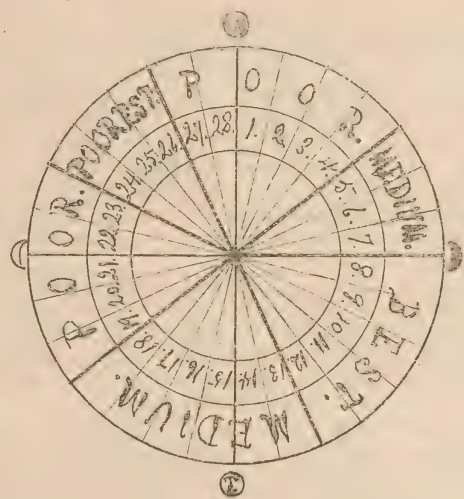 POOR.
MEDIUM.
BEST.
MEDIUM.
POOR.
POOREST.
1. 2. 3. 4. 5. 6. 7. 8. 9. 10. 11. 12. 13. 14. 15. 16. 17. 18. 19. 20. 21. 22. 23. 24. 25. 26. 27. 28.